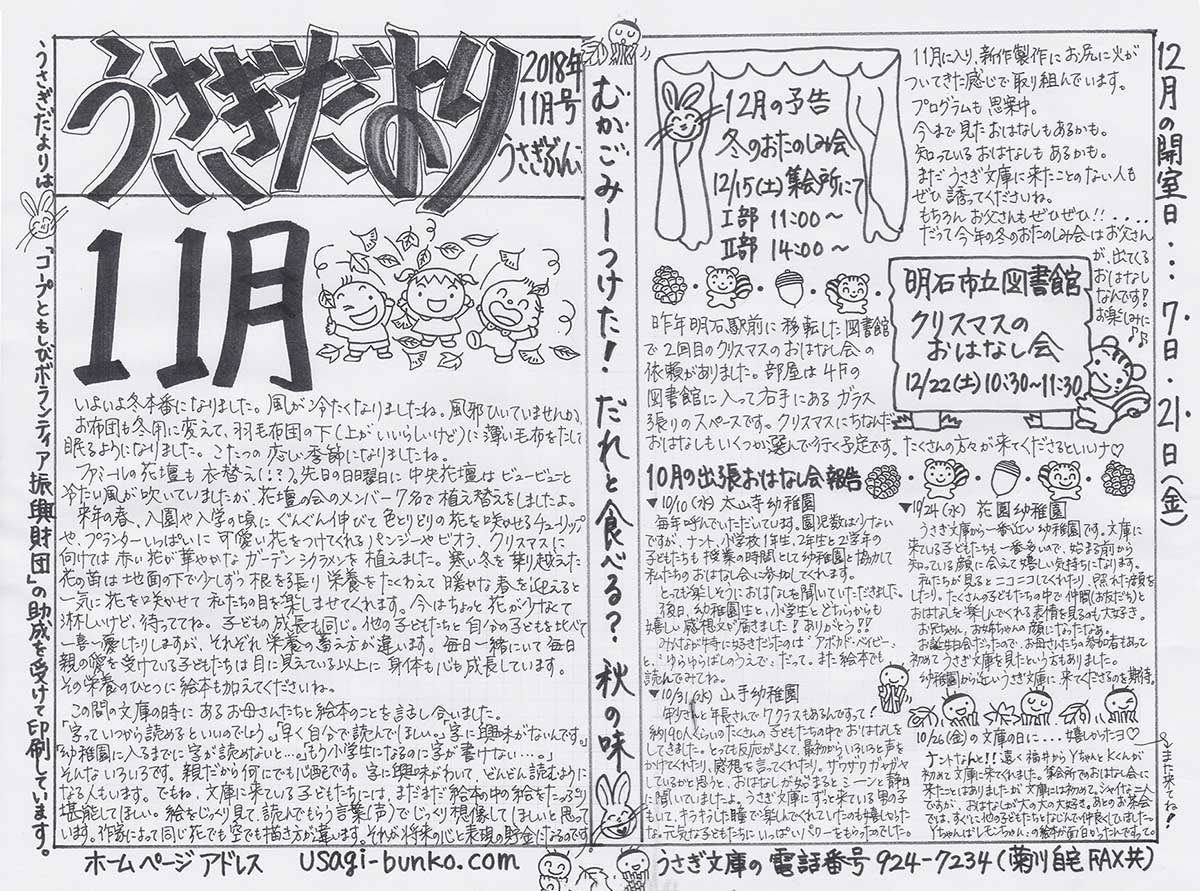 うさぎだより
2018年
11月号
うさぎぶんこ
うさぎだよりは「コープともしびボランティア振興財団」の助成を受けて印刷しています。
11月
いよいよ冬本番になりました。風が冷たくなりましたね。風邪ひいていませんか。
お布団も冬用に変えて、羽毛布団の下(上がいいらしいけど)に薄い毛布をたして
眠るようになりました。こたつの恋しい季節になりましたね。
ファミールの花壇も衣替え(!?)。先日の日曜日に中央花壇はビュービューと
冷たい風が吹いていましたが、花壇の会のメンバー7名で植え替えをしましたよ。
来年の春、入園や入学の頃にぐんぐん伸びて色とりどりの花を咲かせるチューリップ
や、プランターいっぱいに可愛い花をつけてくれるパンジーやビオラ、クリスマスに
向けては赤い花が華やかなガーデンシクラメンを植えました。寒い冬を乗り越えた
花の苗は地面の下で少しずつ根を張り栄養をたくわえて暖やかな春を迎えると
一気に花を咲かせて私たちの目を楽しませてくれます。今はちょっと花が少なくて
淋しいけど、待っててね。子どもの成長も同じ。他の子どもたちと自分の子どもを比べて
一喜一憂したりしますが、それぞれ栄養の蓄え方が違います。毎日一緒にいて毎日
親の愛を受けている子どもたちは目に見えている以上に身体も心も成長しています。
その栄養のひとつに絵本も加えてくださいね。
この間の文庫の時にあるお母さんたちと絵本のことを話し合いました。
「字っていつから読めるといいのでしょう。」「早く自分で読んでほしい。」「字に興味がないんです。」
「幼稚園に入るまでに字が読めないと…。」「もう小学生になるのに字が書けない…。」
そんないろいろです。親だから何にでも心配です。字に興味がわいて、どんどん読むように
なる人もいます。でもね、文庫に来ている子どもたちには、まだまだ絵本の中の絵をたっぷり
堪能してほしい。絵をじっくり見て、読んでもらう言葉(声)でじっくり想像してほしいと思って
います。作家によって同じ花でも空でも描き方が違います。それが将来の心と表現の貯金になるのです。
むかごみーつけた! だれと食べる? 秋の味
12月の予告
冬のおたのしみ会
12/15(土)集会所にて
I部 11:00~
II部 14:00~
11月に入り、新作製作にお尻に火が
ついてきた感じで取り組んでいます。
プログラムも思案中。
今まで見たおはなしもあるかも。
知っているおはなしもあるかも。
まだうさぎ文庫に来たことのない人も
ぜひ誘ってくださいね。
もちろんお父さんもぜひぜひ!!....
だって今年の冬のおたのしみ会はお父さん
が、出てくる
おはなし
なんです!
お楽しみに♪
12月の開室日…7日・21日(金)
昨年明石駅前に移転した図書館
で2回目のクリスマスのおはなし会の
依頼がありました。部屋は4Fの
図書館に入って右手にあるガラス
張りのスペースです。クリスマスにちなんだ
おはなしもいくつか選んで行く予定です。たくさんの方々が来てくださるといいナ♡
明石市立図書館
クリスマスの
おはなし会
12/22(土)10:30~11:30
10月の出張おはなし会報告
▼10/10(水) 太山寺幼稚園
毎年呼んでいただいています。園児数は少ない
ですが、ナント、小学校1年生、2年生と2学年の
子どもたちも授業の時間として幼稚園と協力して
私たちのおはなし会に参加してくれます。
とっても楽しそうにおはなしを聞いていただきました。
後日、幼稚園生と、小学生とどちらからも
嬉しい感想文が届きました!ありがとう!!
みんなが特に好きだったのは“アボカド・ベイビー”
と、“ゆらゆらばしのうえで”だって。また絵本でも
読んでみてね。
▼10/31(水) 山手幼稚園
年少さんと年長さんで7クラスもあるんですって!
約190人ぐらいのたくさんの子どもたちの中でおはなしを
してきました。とっても反応がよくて、最初からいろいろと声を
かけてくれたり、感想を言ってくれたり。ザワザワガヤガヤ
しているかと思うと、おはなしが始まるとシーンと静かに
に聞いていましたよ。うさぎ文庫にずっと来ている男の子
もいて、キラキラした瞳で楽しんでくれていたのも嬉しかった
な。元気な子どもたちにいっぱいパワーをもらったのでした。
▼10/24(水) 花園幼稚園
うさぎ文庫から一番近い幼稚園です。文庫に
来ている子どもたちも一番多いので、始まる前から
知っている顔に会えて嬉しい気持ちになります。
私たちが見るとニコニコしてくれたり、照れた顔を
したり。たくさんの子どもたちの中で仲間(お友だち)と
おはなしを楽しんでくれる表情を見るのも大好き。
お兄ちゃん、お姉ちゃんの顔になったなあ。
お誕生日会だったので、お母さんたちの参加者もあって
初めてうさぎ文庫を見たという方もありました。
幼稚園から近いうさぎ文庫に、来てくださるのを期待。
10/26(金)の文庫の日に…嬉しかったヨ♡
ナントなんと!! 遠く福井からYちゃんとKくんが
初めて文庫に来てくれました。集会所でのおはなし会に
来たことはありましたが文庫には初めて。シャイな二人
ですが、おはなしが大の大の大好き。あとのお茶会
では、すぐに他の子どもたちとなじんで仲良くしていました。
Yちゃんは「レモンちゃん」の絵本が面白かったんですって。
また来てね!
ホームページアドレス usagi-bunko.com
うさぎ文庫の電話番号 924-7234(菊川自宅FAX共)